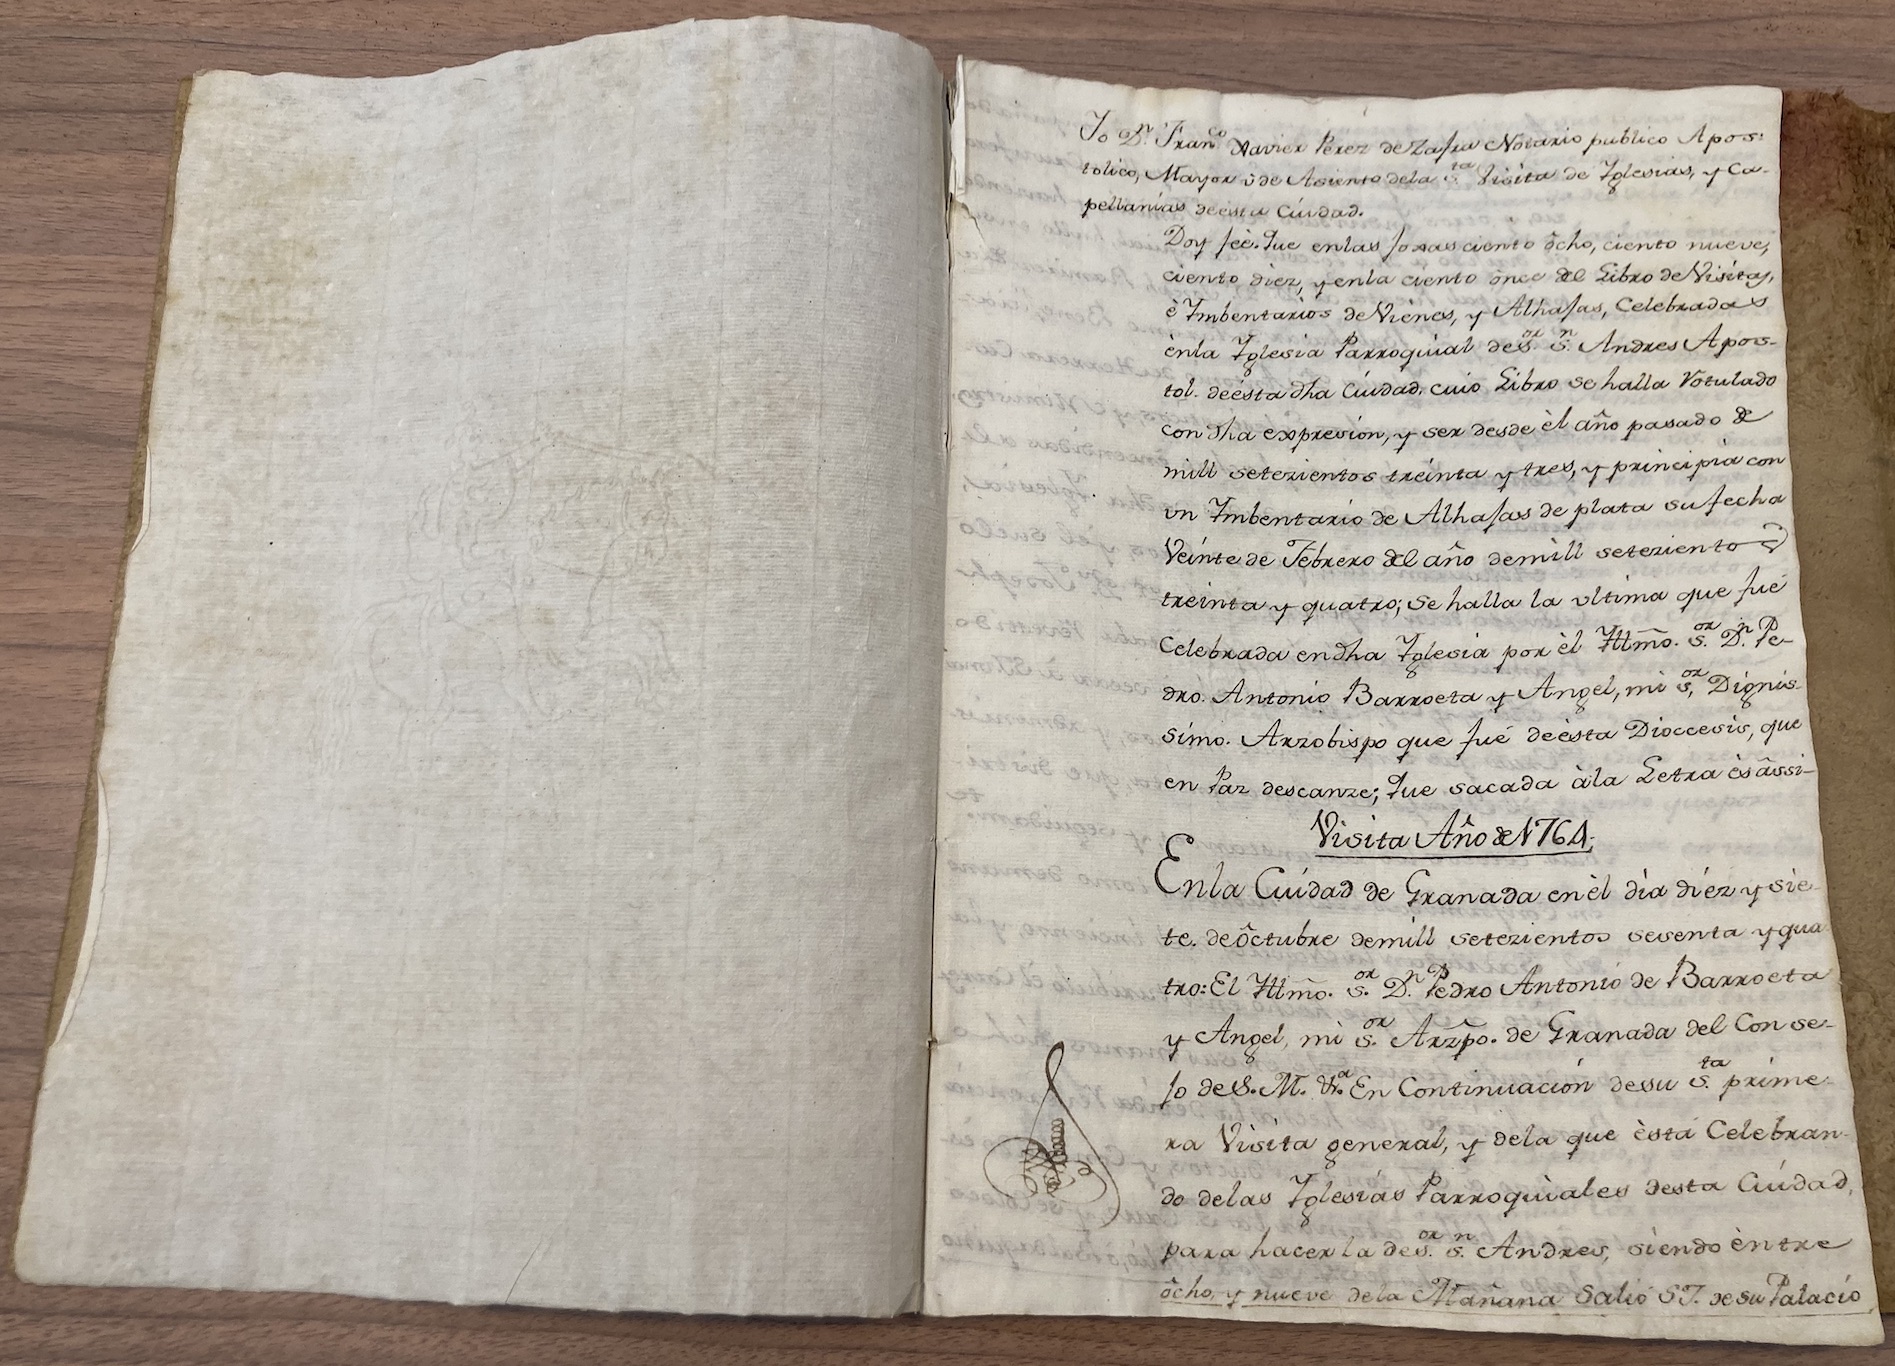 Yo D.n Fran.co Xavier Perez de Zafra Notario publico Apos-
tolico, Mayor ò de Asiento dela S.ta Visita de Yglesias, y Ca-
pellanias deésta Ciudad.
Doy feè. Que enlas foxas ciento ôcho, ciento nueve,
ciento diez, y enla ciento ônce del Libro de Visitas,
è Ymbentarios de Vienes, y Alhajas, Celebradas
ènla Yglesia Parroquial de S.or S.n Andres Apos-
tol. deésta dha Ciudad, cuio Libro se halla Votulado
con dha expresion, y ser desde èl año pasado de
mill setezientos treinta y tres, y principia con
vn Ymbentario de Alhajas de plata su fecha
Veinte de Febrero del año demill setezientos
treinta y quatro; se halla la vltima que fué
Celebrada en dha Yglesia por èl Yllmo. S.or D.n Pe-
dro. Antonio Barroeta y Angel, mi S.or, Dignis-
simo. Arzobispo que fué deèsta Dioccesis, que
en Paz descanze; Que sacada àla Letra ès âssi-
Visita Año de 1764.
Enla Ciudad de Granada en èl dia diez y sie-
te. de Ôctubre demill setezientos sesenta y qua
tro: El Yllmo. S.or D.n Pedro Antonio de Barroeta
y Angel, mi S.or Arzpo. de Granada del Conse-
jo de S. M. &.a En Continuación desu S.ta prime-
ra Visita general, y dela que èstá Celebran-
do delas Yglesias Parroquiales desta Ciudad,
para hacer la de S.or S.n Andres, siendo èntre
ôcho, y nueve dela Mañana Salió S.Y. de su Palacio